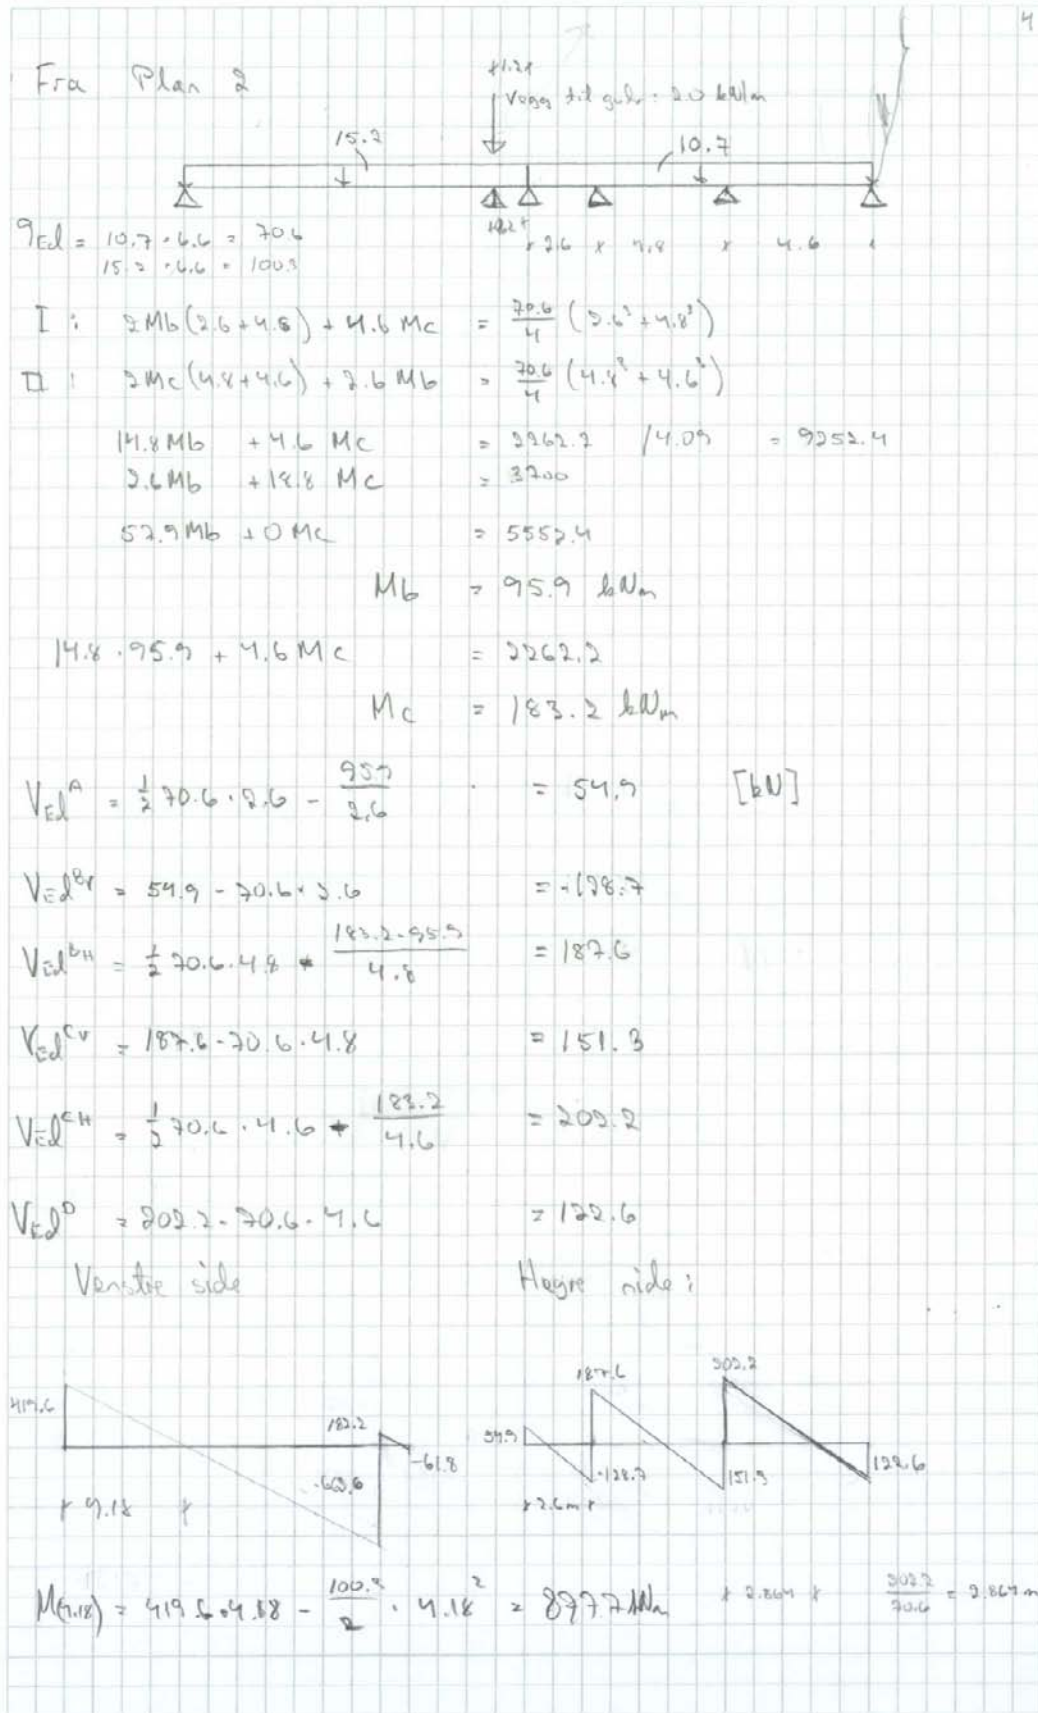 4
Fra Plan 2
Vegg til gulv: 2.0 kN/m
15.2 10.7
qEd = 10.7 · 6.6 = 70.6
15.2 · 6.6 = 100.3
2.6 4.8 4.6
I : 2Mb(2.6+4.8) + 4.6 Mc = 70.6/4 (2.6³ + 4.8³)
II : 2Mc(4.8+4.6) + 2.6 Mb = 70.6/4 (4.8³ + 4.6³)
14.8 Mb + 4.6 Mc = 2262.2 /4.09 = 9252.4
2.6 Mb + 18.8 Mc = 3700
57.9 Mb + 0 Mc = 5552.4
Mb = 95.9 kNm
14.8 · 95.9 + 4.6 Mc = 2262.2
Mc = 183.2 kNm
VEd^A = ½ 70.6 · 2.6 - 95.9/2.6 = 54.9 [kN]
VEd^BV = 54.9 - 70.6 · 2.6 = -128.7
VEd^BH = ½ 70.6 · 4.8 + 183.2-95.9/4.8 = 187.6
VEd^CV = 187.6 - 70.6 · 4.8 = 151.3
VEd^CH = ½ 70.6 · 4.6 + 183.2/4.6 = 202.2
VEd^D = 202.2 - 70.6 · 4.6 = 122.6
Venstre side Høyre side:
187.6 202.2
419.6 182.2 54.9
-61.8 -128.7 151.3 122.6
9.18 2.6m
M(4.18) = 419.6 · 4.18 - 100.3/2 · 4.18² = 877.7 kNm 2.864 202.2/70.6 = 2.864 m